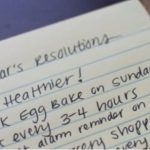 ar's Resolutions
Healthier!
k Egg Bake on Sunday
k every 3-4 hours
t alarm reminder on
very shopp